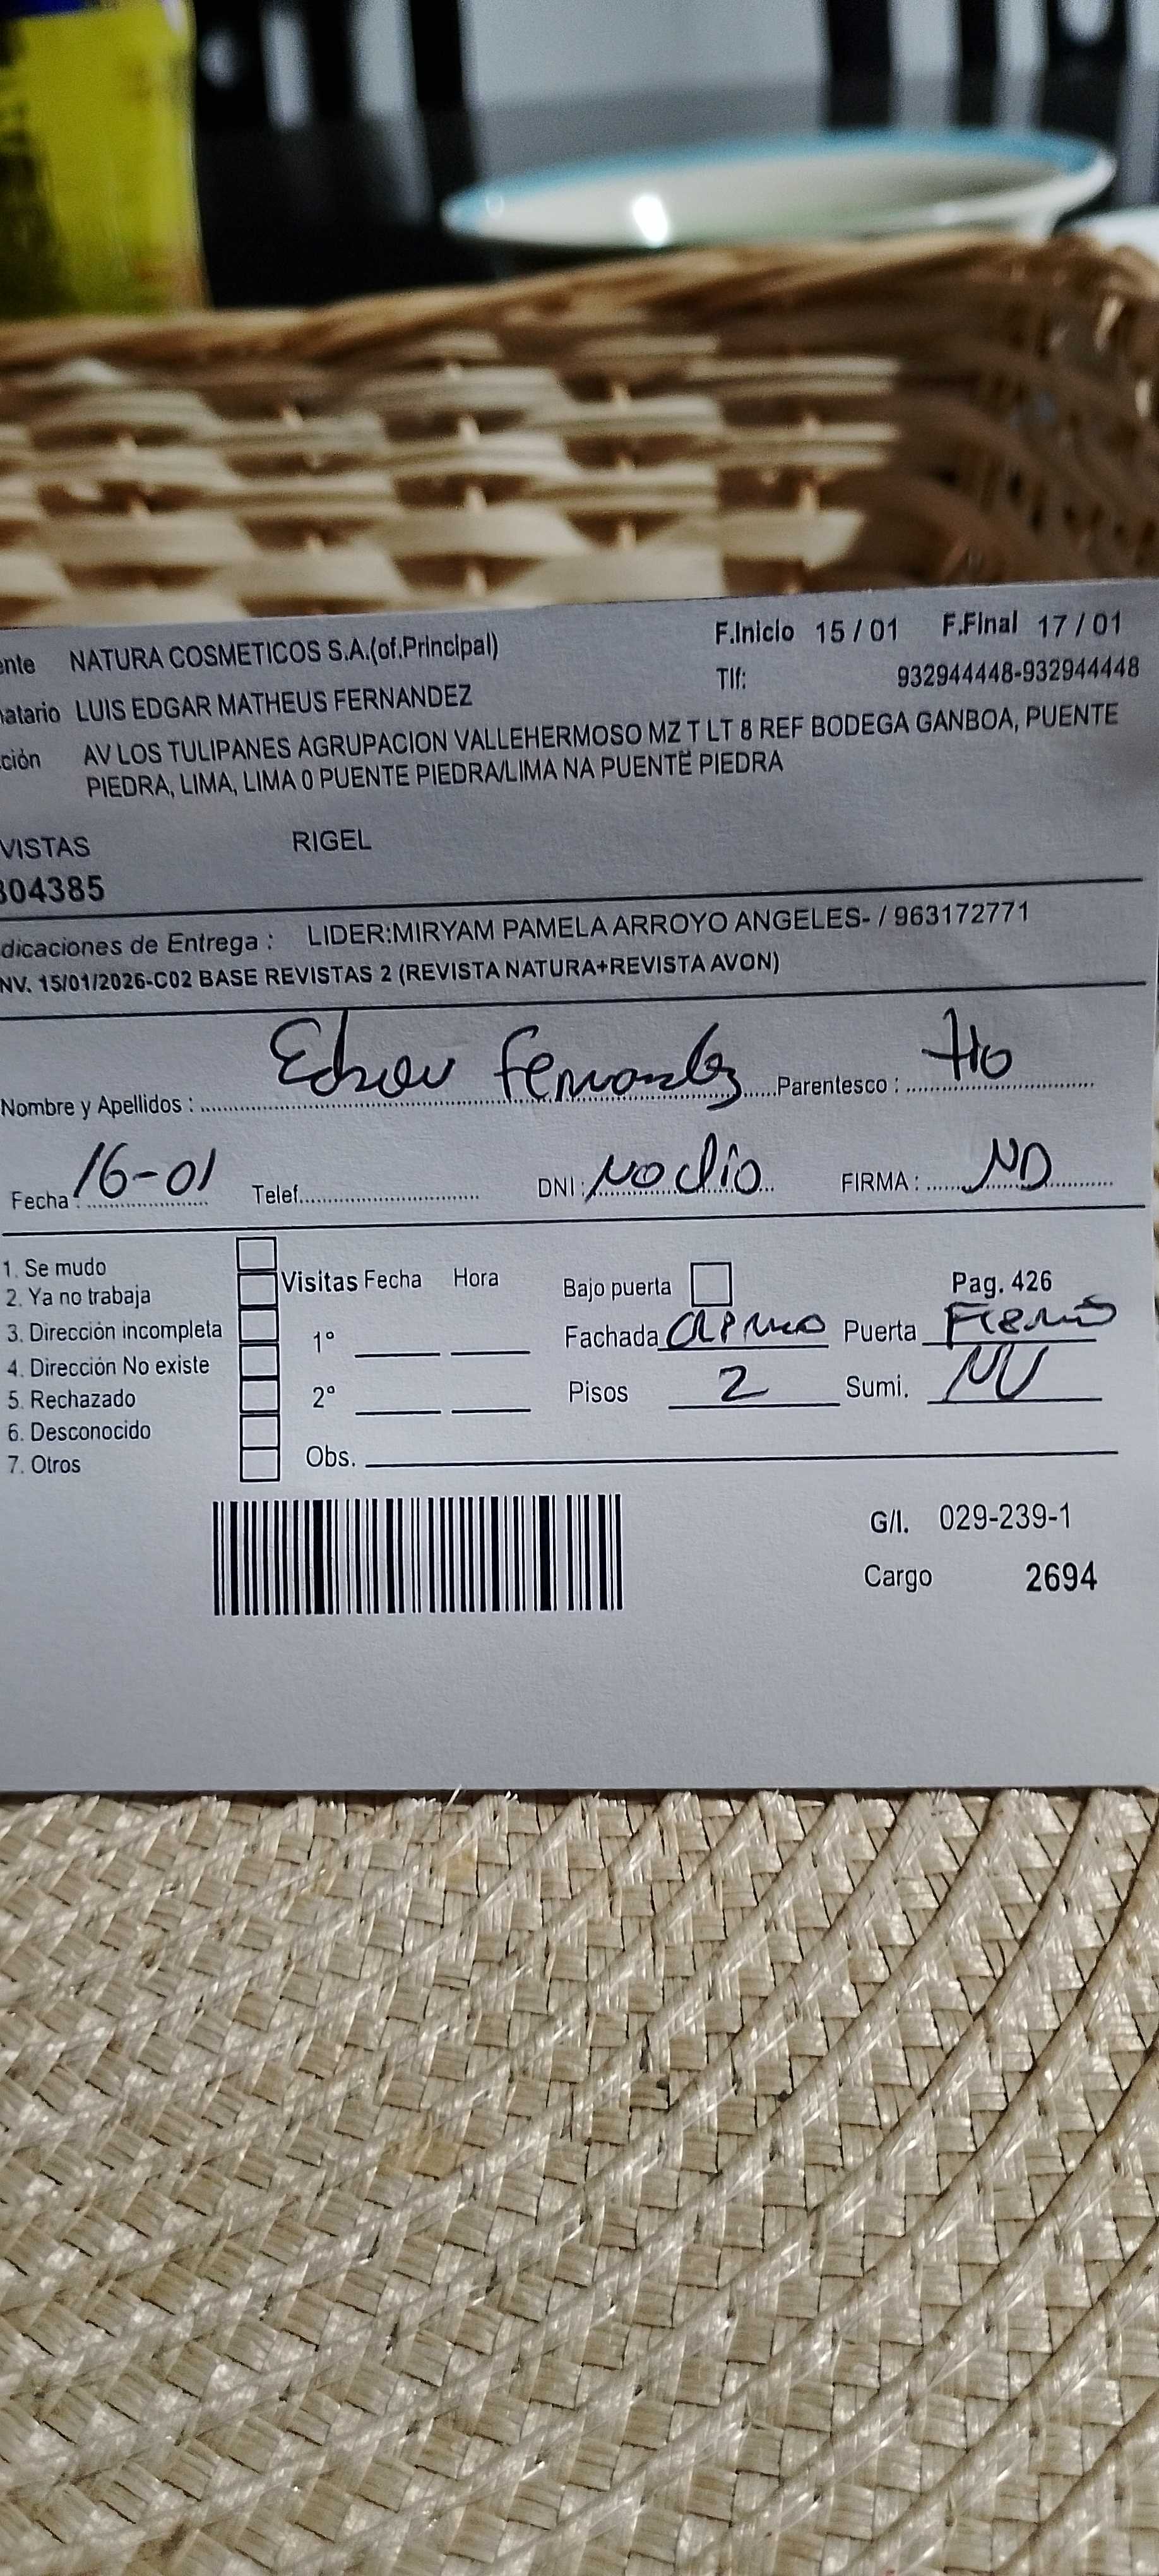 ente NATURA COSMETICOS S.A.(of.Principal) F.Inicio 15 / 01 F.Final 17 / 01
natario LUIS EDGAR MATHEUS FERNANDEZ Tlf: 932944448-932944448
ción AV LOS TULIPANES AGRUPACION VALLEHERMOSO MZ T LT 8 REF BODEGA GANBOA, PUENTE
PIEDRA, LIMA, LIMA 0 PUENTE PIEDRA/LIMA NA PUENTE PIEDRA
VISTAS RIGEL
304385
dicaciones de Entrega : LIDER:MIRYAM PAMELA ARROYO ANGELES- / 963172771
NV. 15/01/2026-C02 BASE REVISTAS 2 (REVISTA NATURA+REVISTA AVON)
Nombre y Apellidos : Fernandez Parentesco : tio
Fecha : 16-01 Telef. DNI : No dio FIRMA : ND
1. Se mudo
2. Ya no trabaja Visitas Fecha Hora Bajo puerta Pag. 426
3. Dirección incompleta 1° Fachada Puerta Fierro
4. Dirección No existe
5. Rechazado 2° Pisos 2 Sumi.
6. Desconocido
7. Otros Obs.
G/I. 029-239-1
Cargo 2694